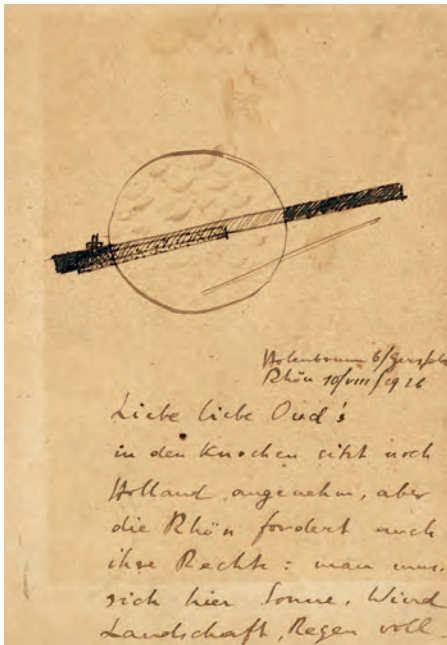 b/Gersfeld
Rhön 10/VIII/1926
Liebe liebe Oud's
in den Knochen sitzt noch
Holland angenehm, aber
die Rhön fordert auch
ihre Rechte: man muss
sich hier Sonne, Wind
Landschaft, Regen voll